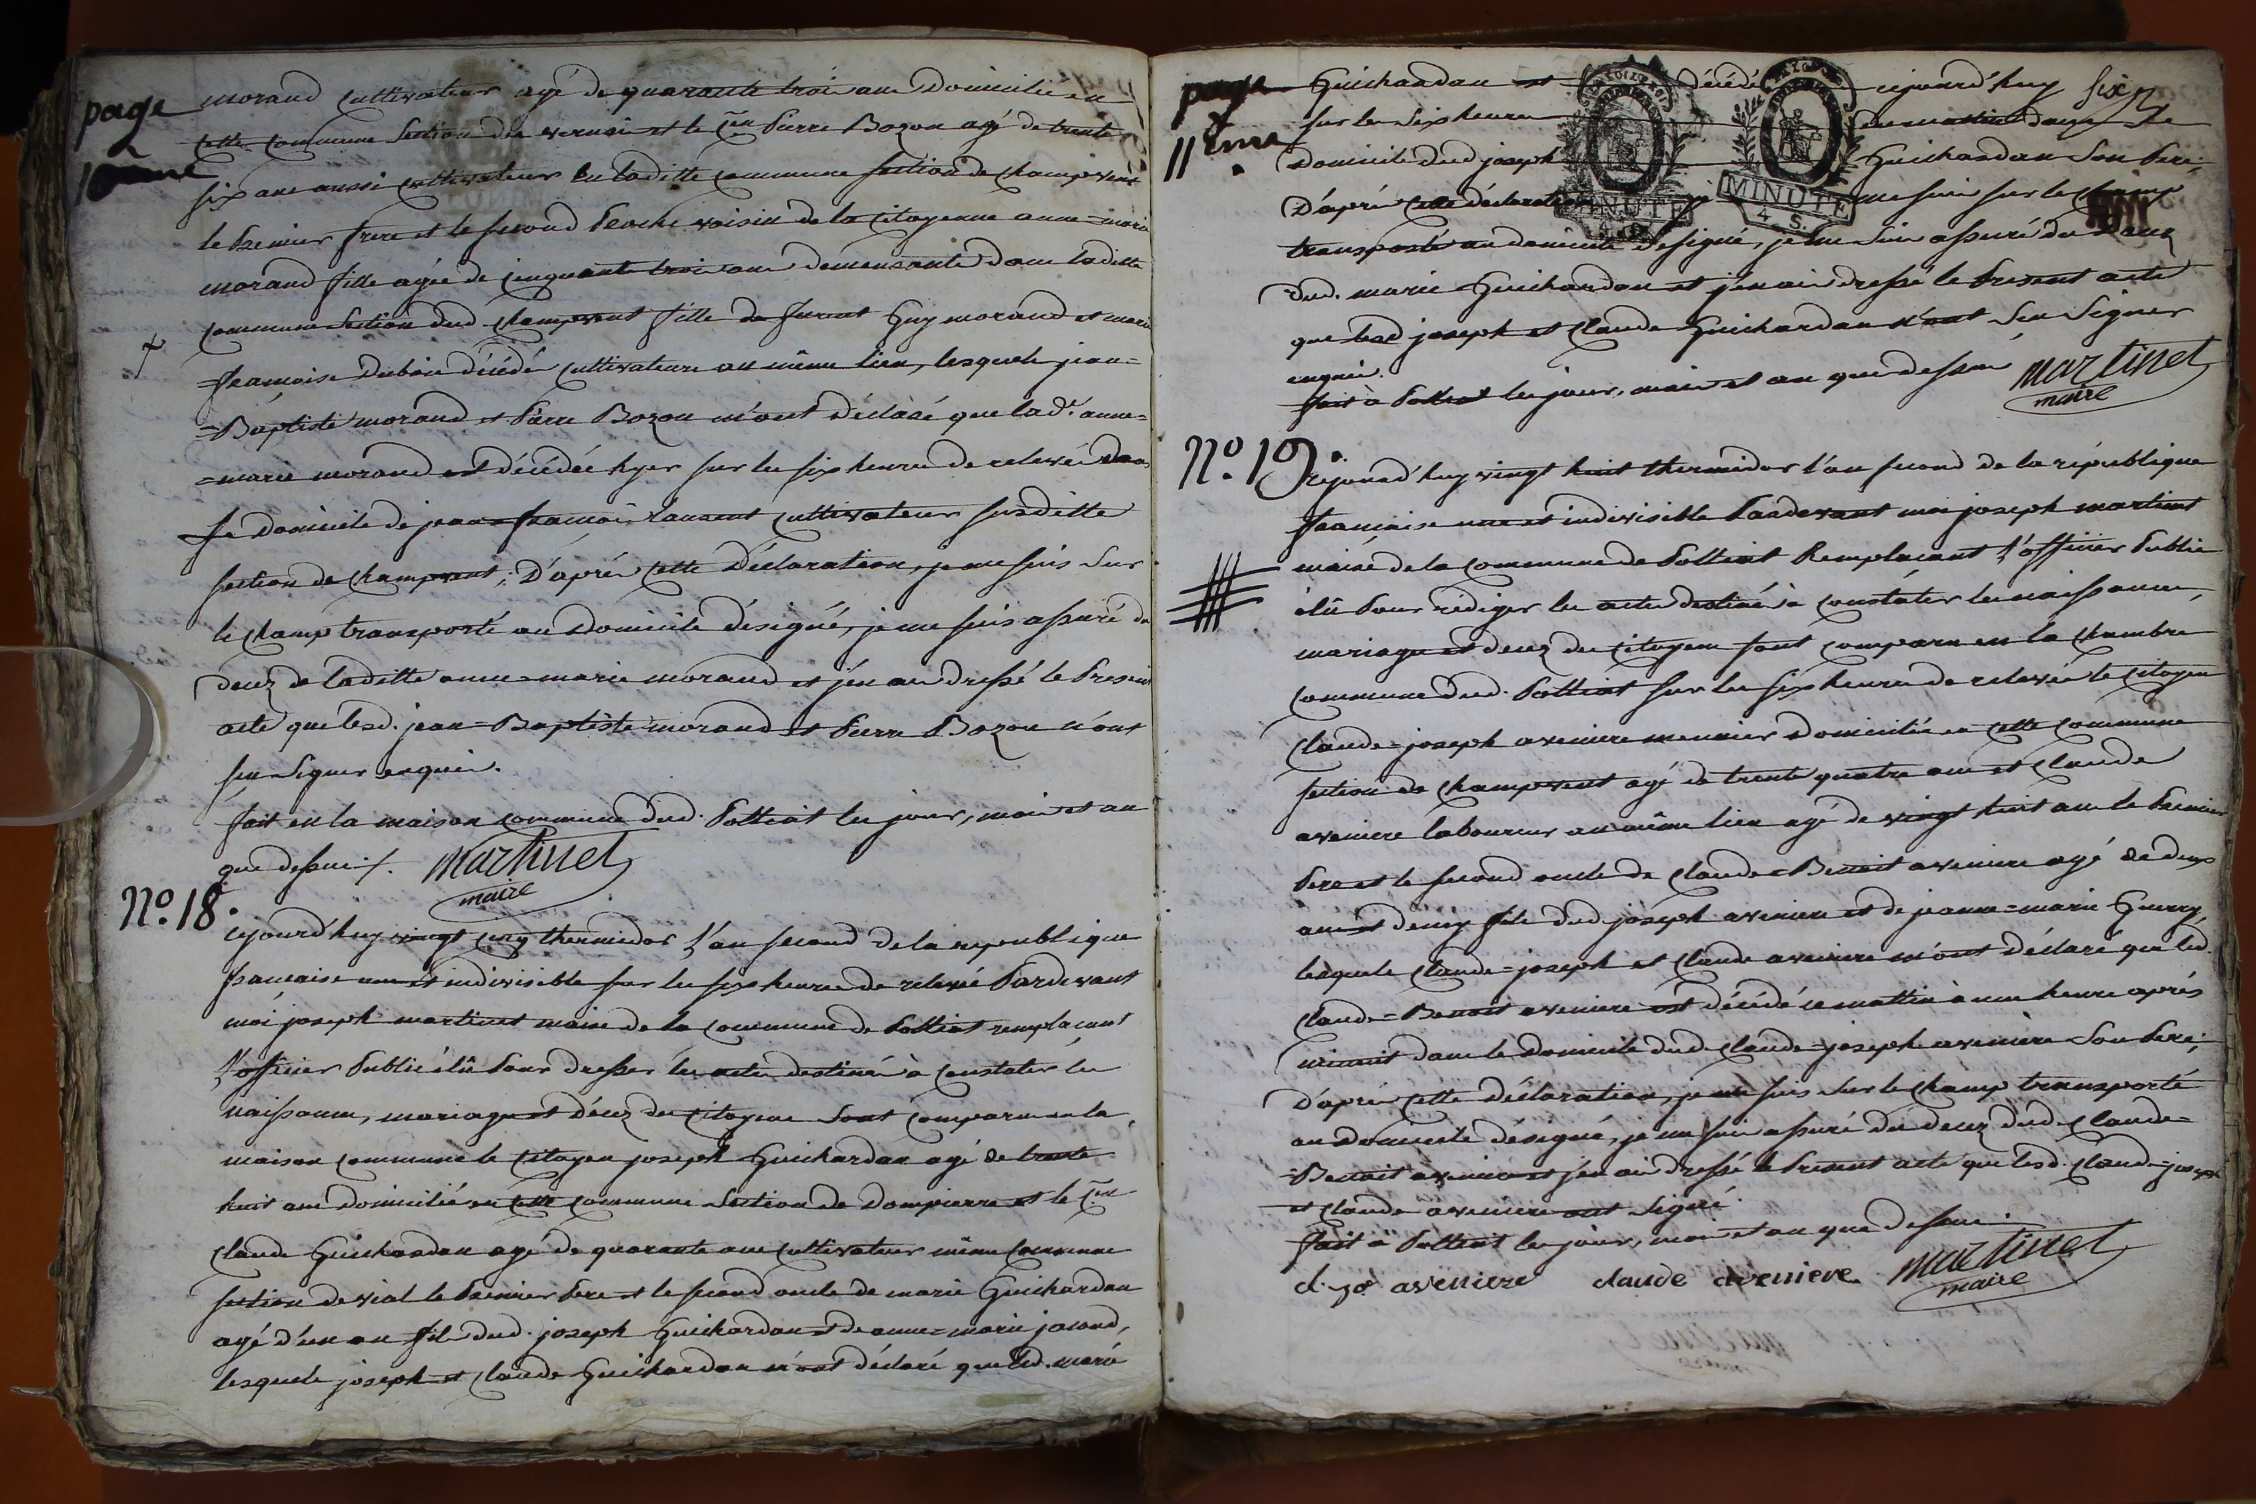 page
10ême
morand cultivateur agé de quarante trois ans Domicilié en
cette commune Section des vernais et le Cen Pierre Bozon agé de trente
six ans aussi cultivateur en laditte commune section de champvent
le Premier frere et le second Proche voisin de la citoyenne anne=marie
morand fille agée de cinquante trois ans demeurante dans laditte
commune Section dud champvent fille de furent Guy morand et marie
francoise Dubois décédés cultivateurs au même lieu, lesquels jean=
=Baptiste morand et Pierre Bozon m'ont déclaré que lade. anne=
=marie morand est décédée hyer sur les six heures de relevée dans
le Domicile de jean=francois laurent cultivateur susditte
section de champvent; D'après cette Déclaration, je me suis sur
le champ transporté au Domicile désigné, je me suis assuré du
decez de laditte anne=marie morand et j'en ai dressé le Present
acte que lesd. jean=Baptiste morand et Pierre Bozon n'ont
sçu signer enquis.
fait en la maison commune dud. Polliat les jour, mois et an
que dessus. martinet
maire
No. 18.
cejourd'huy vingt cinq thermidor l'an second de la republique
francaise une et indivisible sur les six heures de relevée Pardevant
moi joseph martinet maire de la commune de Polliat remplacant
l'officier Public élû Pour dresser les actes destinés à constater les
naissances, mariages et décez des citoyens sont comparus en la
maison commune le citoyen joseph Guichardan agé de trente
huit ans domicilié en cette commune Section de dompierre et le Cen
claude Guichardan agé de quarante ans cultivateur même commune
section de vial le Premier Pere et le second oncle de marie Guichardan
agé d'un an fils dud. joseph Guichardan et de anne=marie jacond,
lesquels joseph et claude Guichardan m'ont déclaré que led. marie
page
11ême
Guichardan est décédé cejourd'huy six
sur les six heures du mattin dans le
Domicile dud joseph Guichardan son Pere;
D'après cette déclaration je me suis sur le champ
transporté au domicile désigné, je me suis assuré du decez
dud. marie Guichardan et j'en ai dressé le Present acte
que lesd joseph et claude Guichardan n'ont sçu signer
enquis.
fait à Polliat les jour, mois et an que dessus martinet
maire
MINUTE
4. S.
MINUTE
4. S.
No. 19.
cejourd'huy vingt huit thermidor l'an second de la république
francaise une et indivisible Pardevant moi joseph martinet
maire de la commune de Polliat Remplacant l'officier Public
élû Pour rédiger les actes destinés à constater les naissances,
mariages et decez des citoyens sont comparus en la chambre
commune dud. Polliat sur les six heures de relevée le citoyen
claude=joseph aveniere meunier domicilié en cette commune
section de champvent agé de trente quatre ans et claude
aveniere laboureur au même lieu agé de vingt huit ans le Premier
Pere et le second oncle de claude=Benoit aveniere agé de deux
ans et demy fils dud joseph aveniere et de jeanne=marie Guerry
lesquels claude=joseph et claude aveniere m'ont déclaré que led.
claude=Benoit aveniere est décédé ce mattin à une heure après
minuit dans le Domicile dud claude=joseph aveniere son Pere;
D'après cette déclaration, je me suis sur le champ transporté
au domicile désigné, je me suis assuré du decez dud. claude=
=Benoit aveniere et j'en ai dressé le Present acte que lesd. claude=joseph
et claude aveniere ont signé.
fait à Polliat les jour, mois et an que dessus.
cl. jo. aveniere claude aveniere martinet
maire